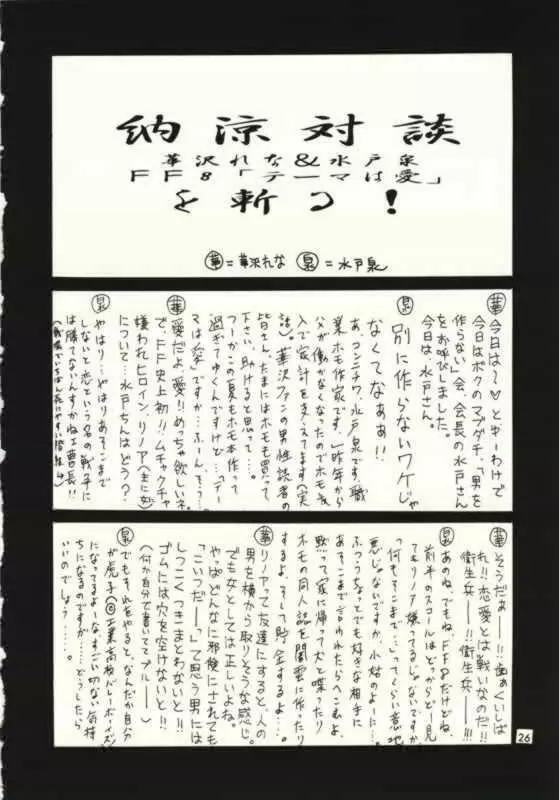 納涼対談
華沢れな&水戸泉
FF8「テーマは愛」
を斬る!
華=華沢れな 泉=水戸泉
華 今日は〜♡とゆーわけで
今日はボクのマブダチ、「男を
作らない」会、会長の水戸さん
をお呼びしました。
今日は、水戸さん。
泉 別に作らないワケじゃ
なくてなぁぁ!!
あ、コンニチワ、水戸泉です。職
業ホモ作家です。昨年から
父が働かなくなったのでホモ収
入で家計を支えてます(実
話)。華沢ファンの男性読者の
皆さん、たまにはホモも買って
下さい、助けると思って…。
つーかこの夏もホモ本作って
過ぎてゆくんですけど…「テー
マは愛」ですか…ふーん、そう…。
華 愛だよ、愛!!めちゃ欲しいネ。
で、FF史上初!!ムチャクチャ
嫌われヒロイン、リノア(主に女)
について…水戸さんはどう?
泉 やはり…やはりあそこまで
しないと恋という名の戦争に
は勝てないんすかね工曹長!!
華 そうだぁ——!!歯ぁくいしば
れ!!恋愛とは戦いなのだ!!
衛生兵——!!衛生兵——!!!
泉 あのね、でもね、FF8だけどね、
前半のスコールはどっからどー見
てもリノア嫌ってるじゃないですか。
「何もそこまで…」ってくらい意地
悪じゃないですか、小姑のように…。
ふつうちょっとでも好きな相手に
あそこまで言われたらへこむよ、
黙って家に帰って犬と喋ったり
ホモの同人誌を闇雲に作ったり
するよ、そして貯金するよ…。
華 リノアって友達にすると、人の
男を横から取りそうな感じ。
でも女としては正しいよね。
やっぱどんなに邪険にされても
「こいつだ——っ」て思う男には
しつこくつきまとわないと!!
ゴムには穴を空けないと!!
(何か自分で書いててブルー——)
泉 でもそれをやると、なんだか自分
が虎子(©工業高校バレーボーイズ)
になってるよーな、すごい切ない気持
ちになるのですが…どうしたら
いいのでしょう……。
26